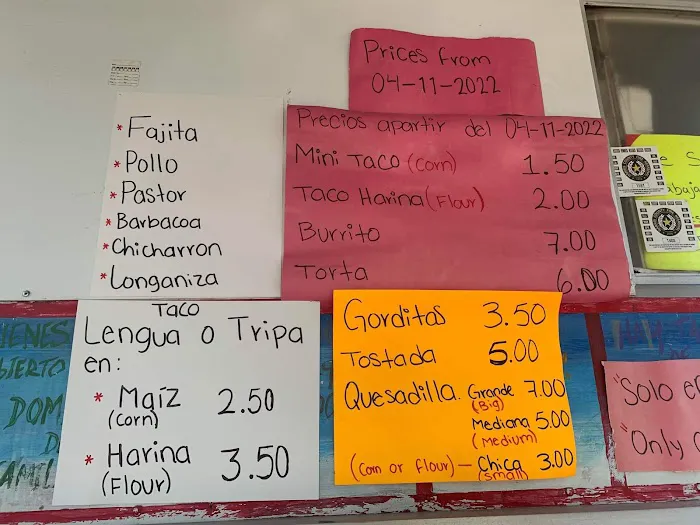 Prices from
04-11-2022
* Fajita
* Pollo
* Pastor
* Barbacoa
* Chicharron
* Longaniza
Precios apartir del 04-11-2022
Mini Taco (corn) 1.50
Taco Harina (Flour) 2.00
Burrito 7.00
Torta 6.00
Taco
Lengua o Tripa
en:
* Maíz 2.50
(corn)
* Harina 3.50
(Flour)
Gorditas 3.50
Tostada 5.00
Quesadilla. Grande 7.00
(Big)
Mediana 5.00
(Medium)
(Corn or Flour) - Chica 3.00
(small)
"Solo
"Only
DOM